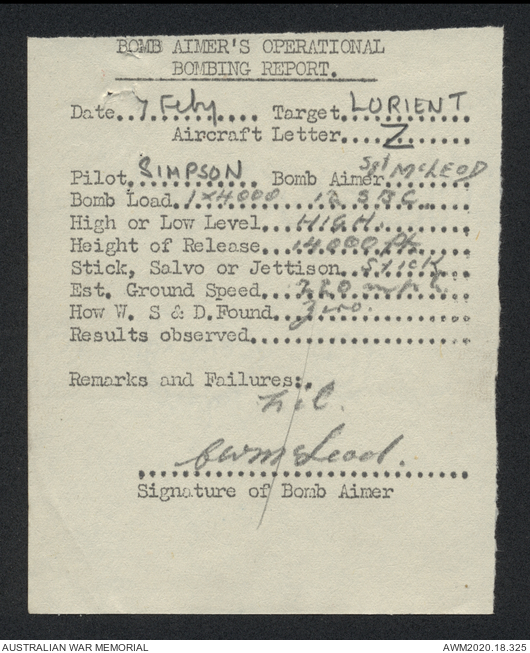 BOMB AIMER'S OPERATIONAL
BOMBING REPORT.
Date..7 Feby.... Target LORIENT
Aircraft Letter..Z......
Pilot. SIMPSON Bomb Aimer Sgt McLEOD
Bomb Load. 1x4000 12 SBC.
High or Low Level. HIGH.
Height of Release. 14000 ft.
Stick, Salvo or Jettison. STICK
Est. Ground Speed. 220 mph.
How W. S & D. Found.
Results observed.
Remarks and Failures:.
nil.
McLeod.
Signature of Bomb Aimer
AUSTRALIAN WAR MEMORIAL
AWM2020.18.325